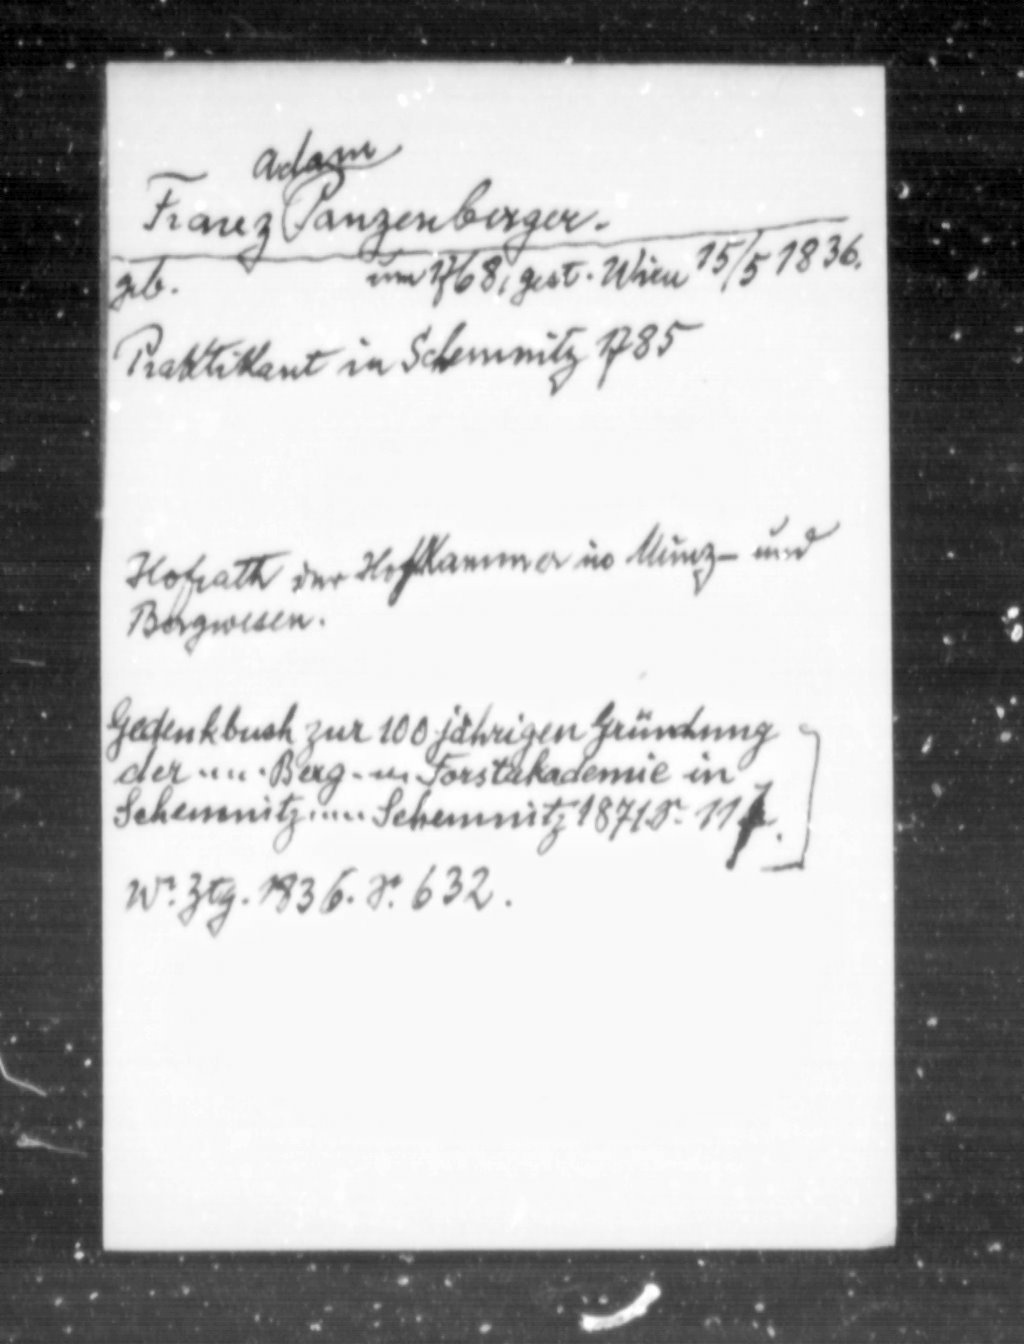 Adam
Franz Panzenberger.
geb. um 1768, gest. Wien 15/5 1836.
Praktikant in Schemnitz 1785
Hofrath der Hofkammer in Münz- und
Bergwesen.
Gedenkbuch zur 100 jährigen Gründung
der .... Berg- u. Forstakademie in
Schemnitz .... Schemnitz 1871. S.
Wr. Ztg. 1836. S. 632.